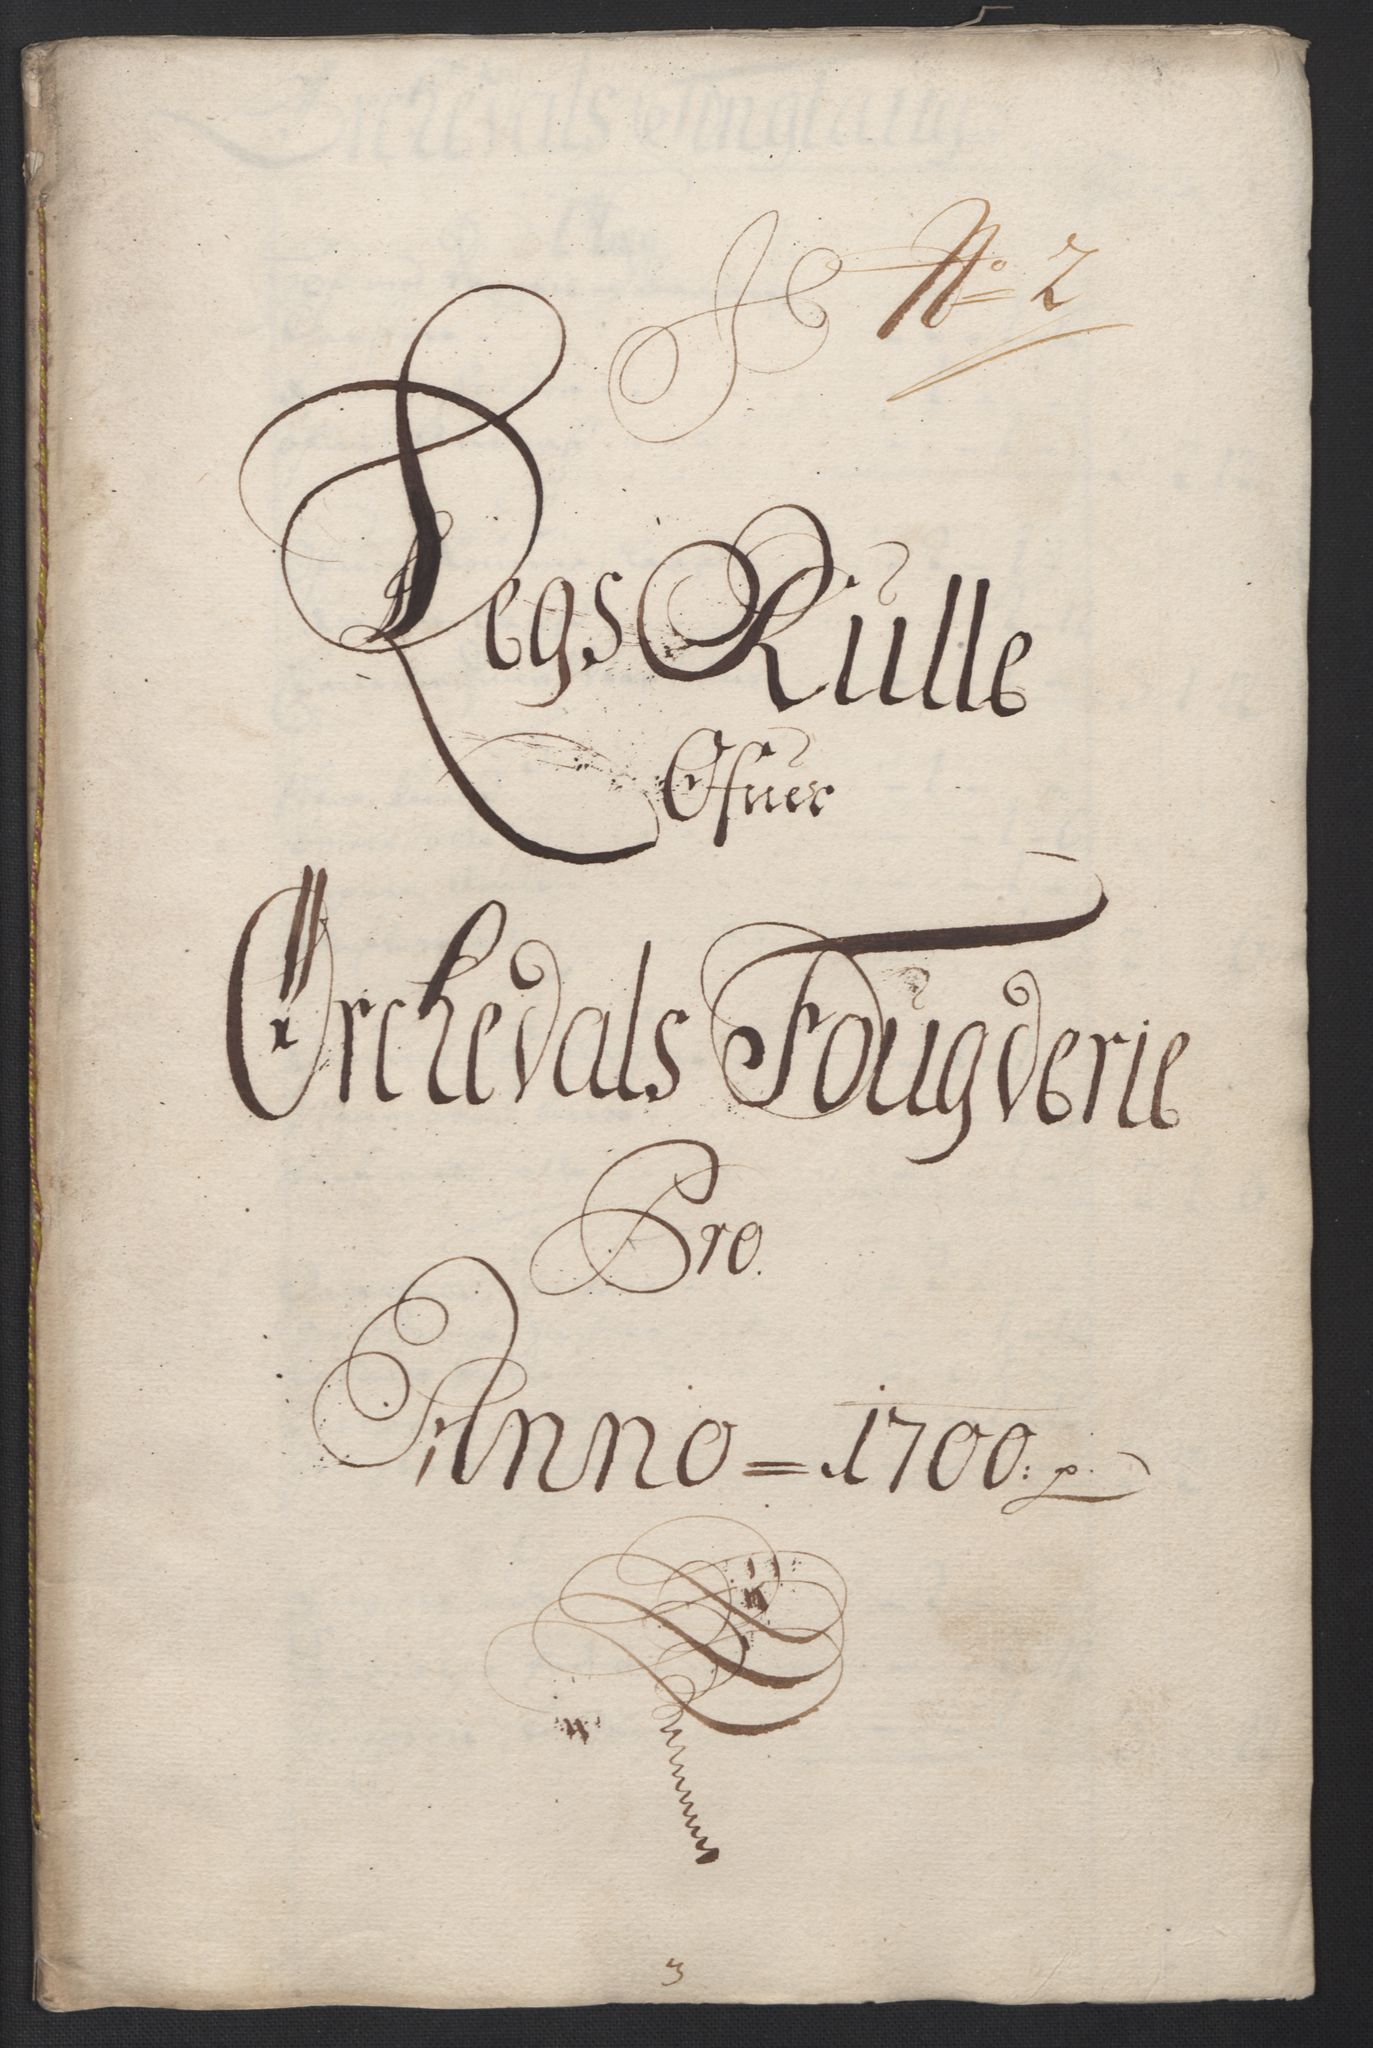 No 2
Legs Rulle
Ofuer
Orchedals Fougderie
Pro.
Anno = 1700:
3